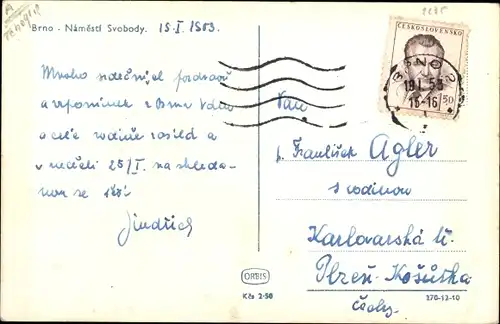 Brno - Náměstí Svobody. 15-I. 1953.
Mnoho srdečných pozdravů
a vzpomínek z Brna Vám
a celé rodině zasílá a
v neděli 25/I. na shleda-
nou se těší
Jindřich
ČESKOSLOVENSKO
BRNO 2
19.I.53
15-16
1,50
Pan
p. František Agler
s rodinou
Karlovarská tř.
Plzeň - Košutka
Čechy.
ORBIS
Kčs 2·50
270-12-10